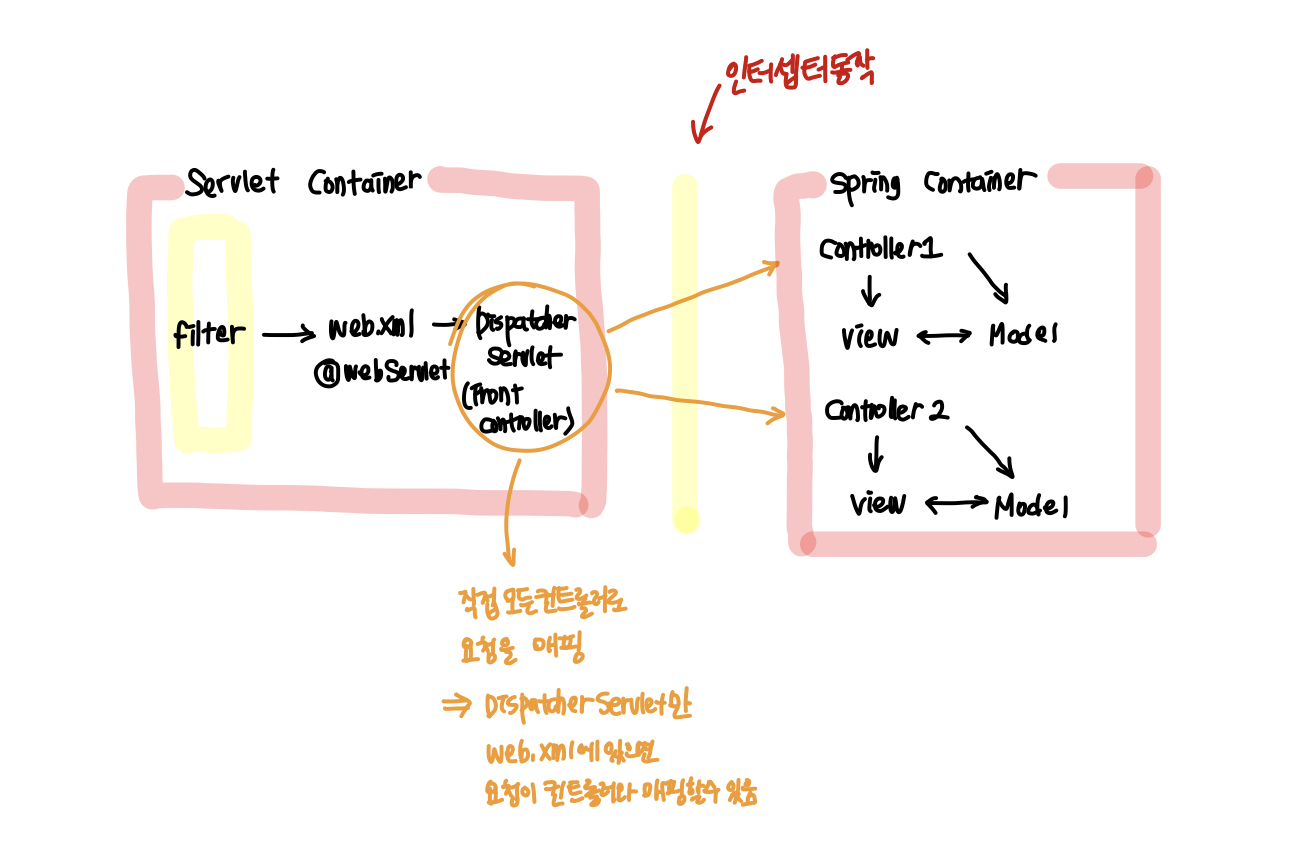 인터셉터동작
Servlet Container
filter
web.xml
@webServlet
Dispatcher
Servlet
(Front
controller)
Spring Container
Controller1
View
Model
Controller2
View
Model
직접 모든컨트롤러로
요청을 매핑
⇒ DispatcherServlet만
web.xml에 있으면
요청이 컨트롤러와 매핑할수 있음